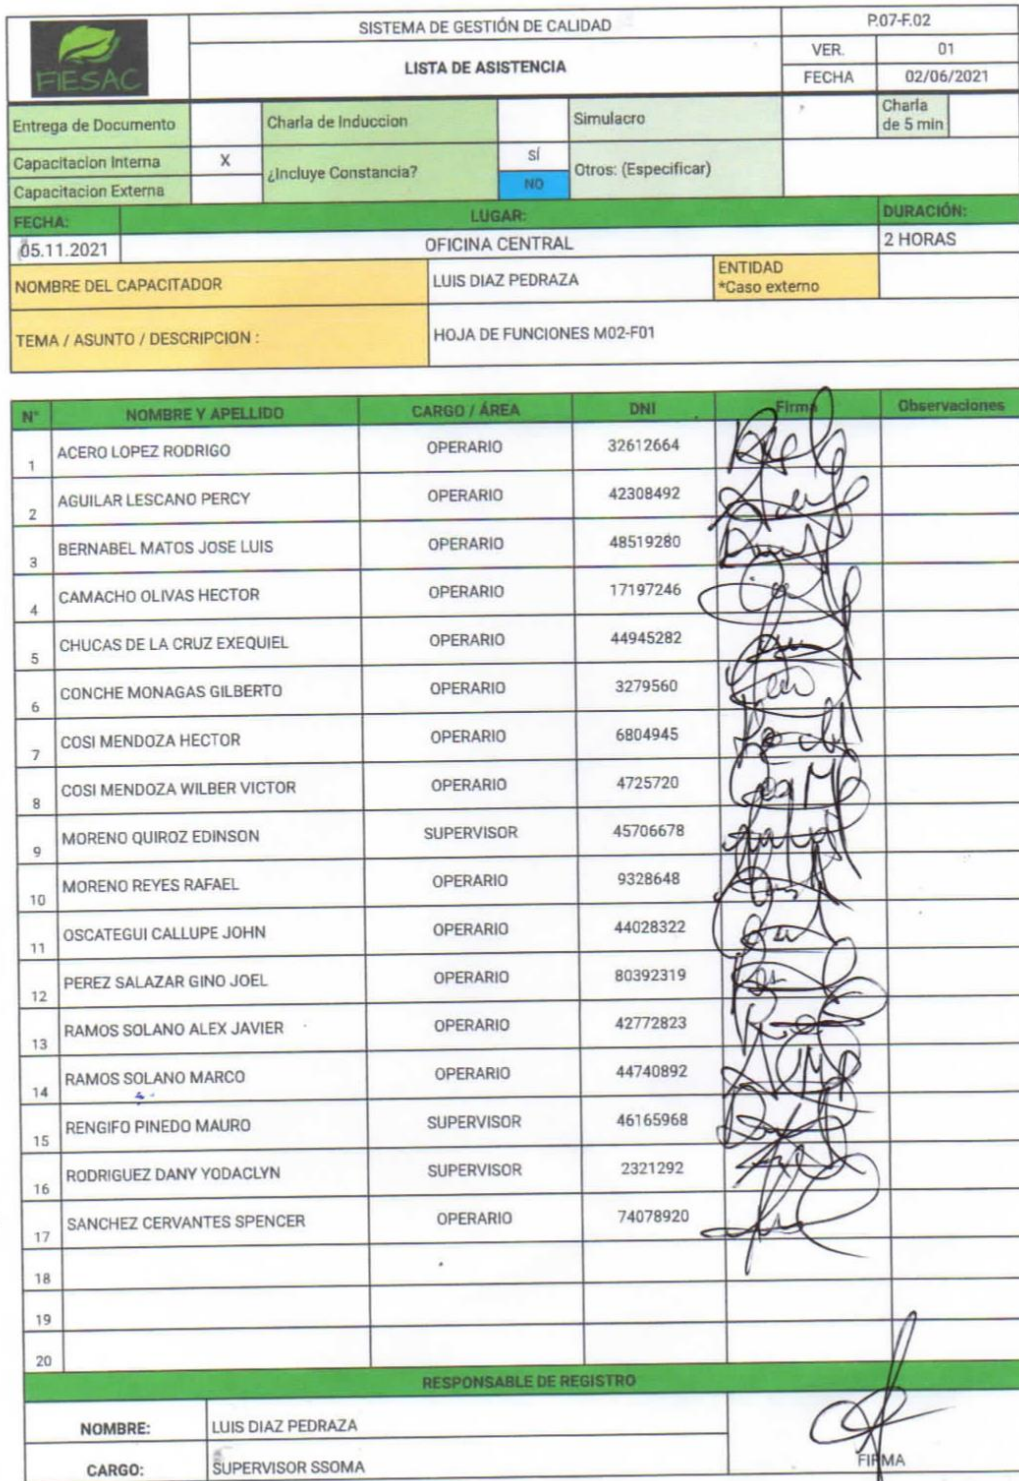 FIESAC
SISTEMA DE GESTIÓN DE CALIDAD
P.07-F.02
LISTA DE ASISTENCIA
VER. 01
FECHA 02/06/2021
Entrega de Documento
Charla de Induccion
Simulacro
Charla
de 5 min
Capacitacion Interna X
¿Incluye Constancia? SÍ
Otros: (Especificar)
Capacitacion Externa
NO
FECHA: LUGAR: DURACIÓN:
05.11.2021 OFICINA CENTRAL 2 HORAS
NOMBRE DEL CAPACITADOR LUIS DIAZ PEDRAZA ENTIDAD
*Caso externo
TEMA / ASUNTO / DESCRIPCION : HOJA DE FUNCIONES M02-F01
N° NOMBRE Y APELLIDO CARGO / ÁREA DNI Firma Observaciones
1 ACERO LOPEZ RODRIGO OPERARIO 32612664
2 AGUILAR LESCANO PERCY OPERARIO 42308492
3 BERNABEL MATOS JOSE LUIS OPERARIO 48519280
4 CAMACHO OLIVAS HECTOR OPERARIO 17197246
5 CHUCAS DE LA CRUZ EXEQUIEL OPERARIO 44945282
6 CONCHE MONAGAS GILBERTO OPERARIO 3279560
7 COSI MENDOZA HECTOR OPERARIO 6804945
8 COSI MENDOZA WILBER VICTOR OPERARIO 4725720
9 MORENO QUIROZ EDINSON SUPERVISOR 45706678
10 MORENO REYES RAFAEL OPERARIO 9328648
11 OSCATEGUI CALLUPE JOHN OPERARIO 44028322
12 PEREZ SALAZAR GINO JOEL OPERARIO 80392319
13 RAMOS SOLANO ALEX JAVIER OPERARIO 42772823
14 RAMOS SOLANO MARCO OPERARIO 44740892
15 RENGIFO PINEDO MAURO SUPERVISOR 46165968
16 RODRIGUEZ DANY YODACLYN SUPERVISOR 2321292
17 SANCHEZ CERVANTES SPENCER OPERARIO 74078920
18
19
20
RESPONSABLE DE REGISTRO
NOMBRE: LUIS DIAZ PEDRAZA
CARGO: SUPERVISOR SSOMA FIRMA